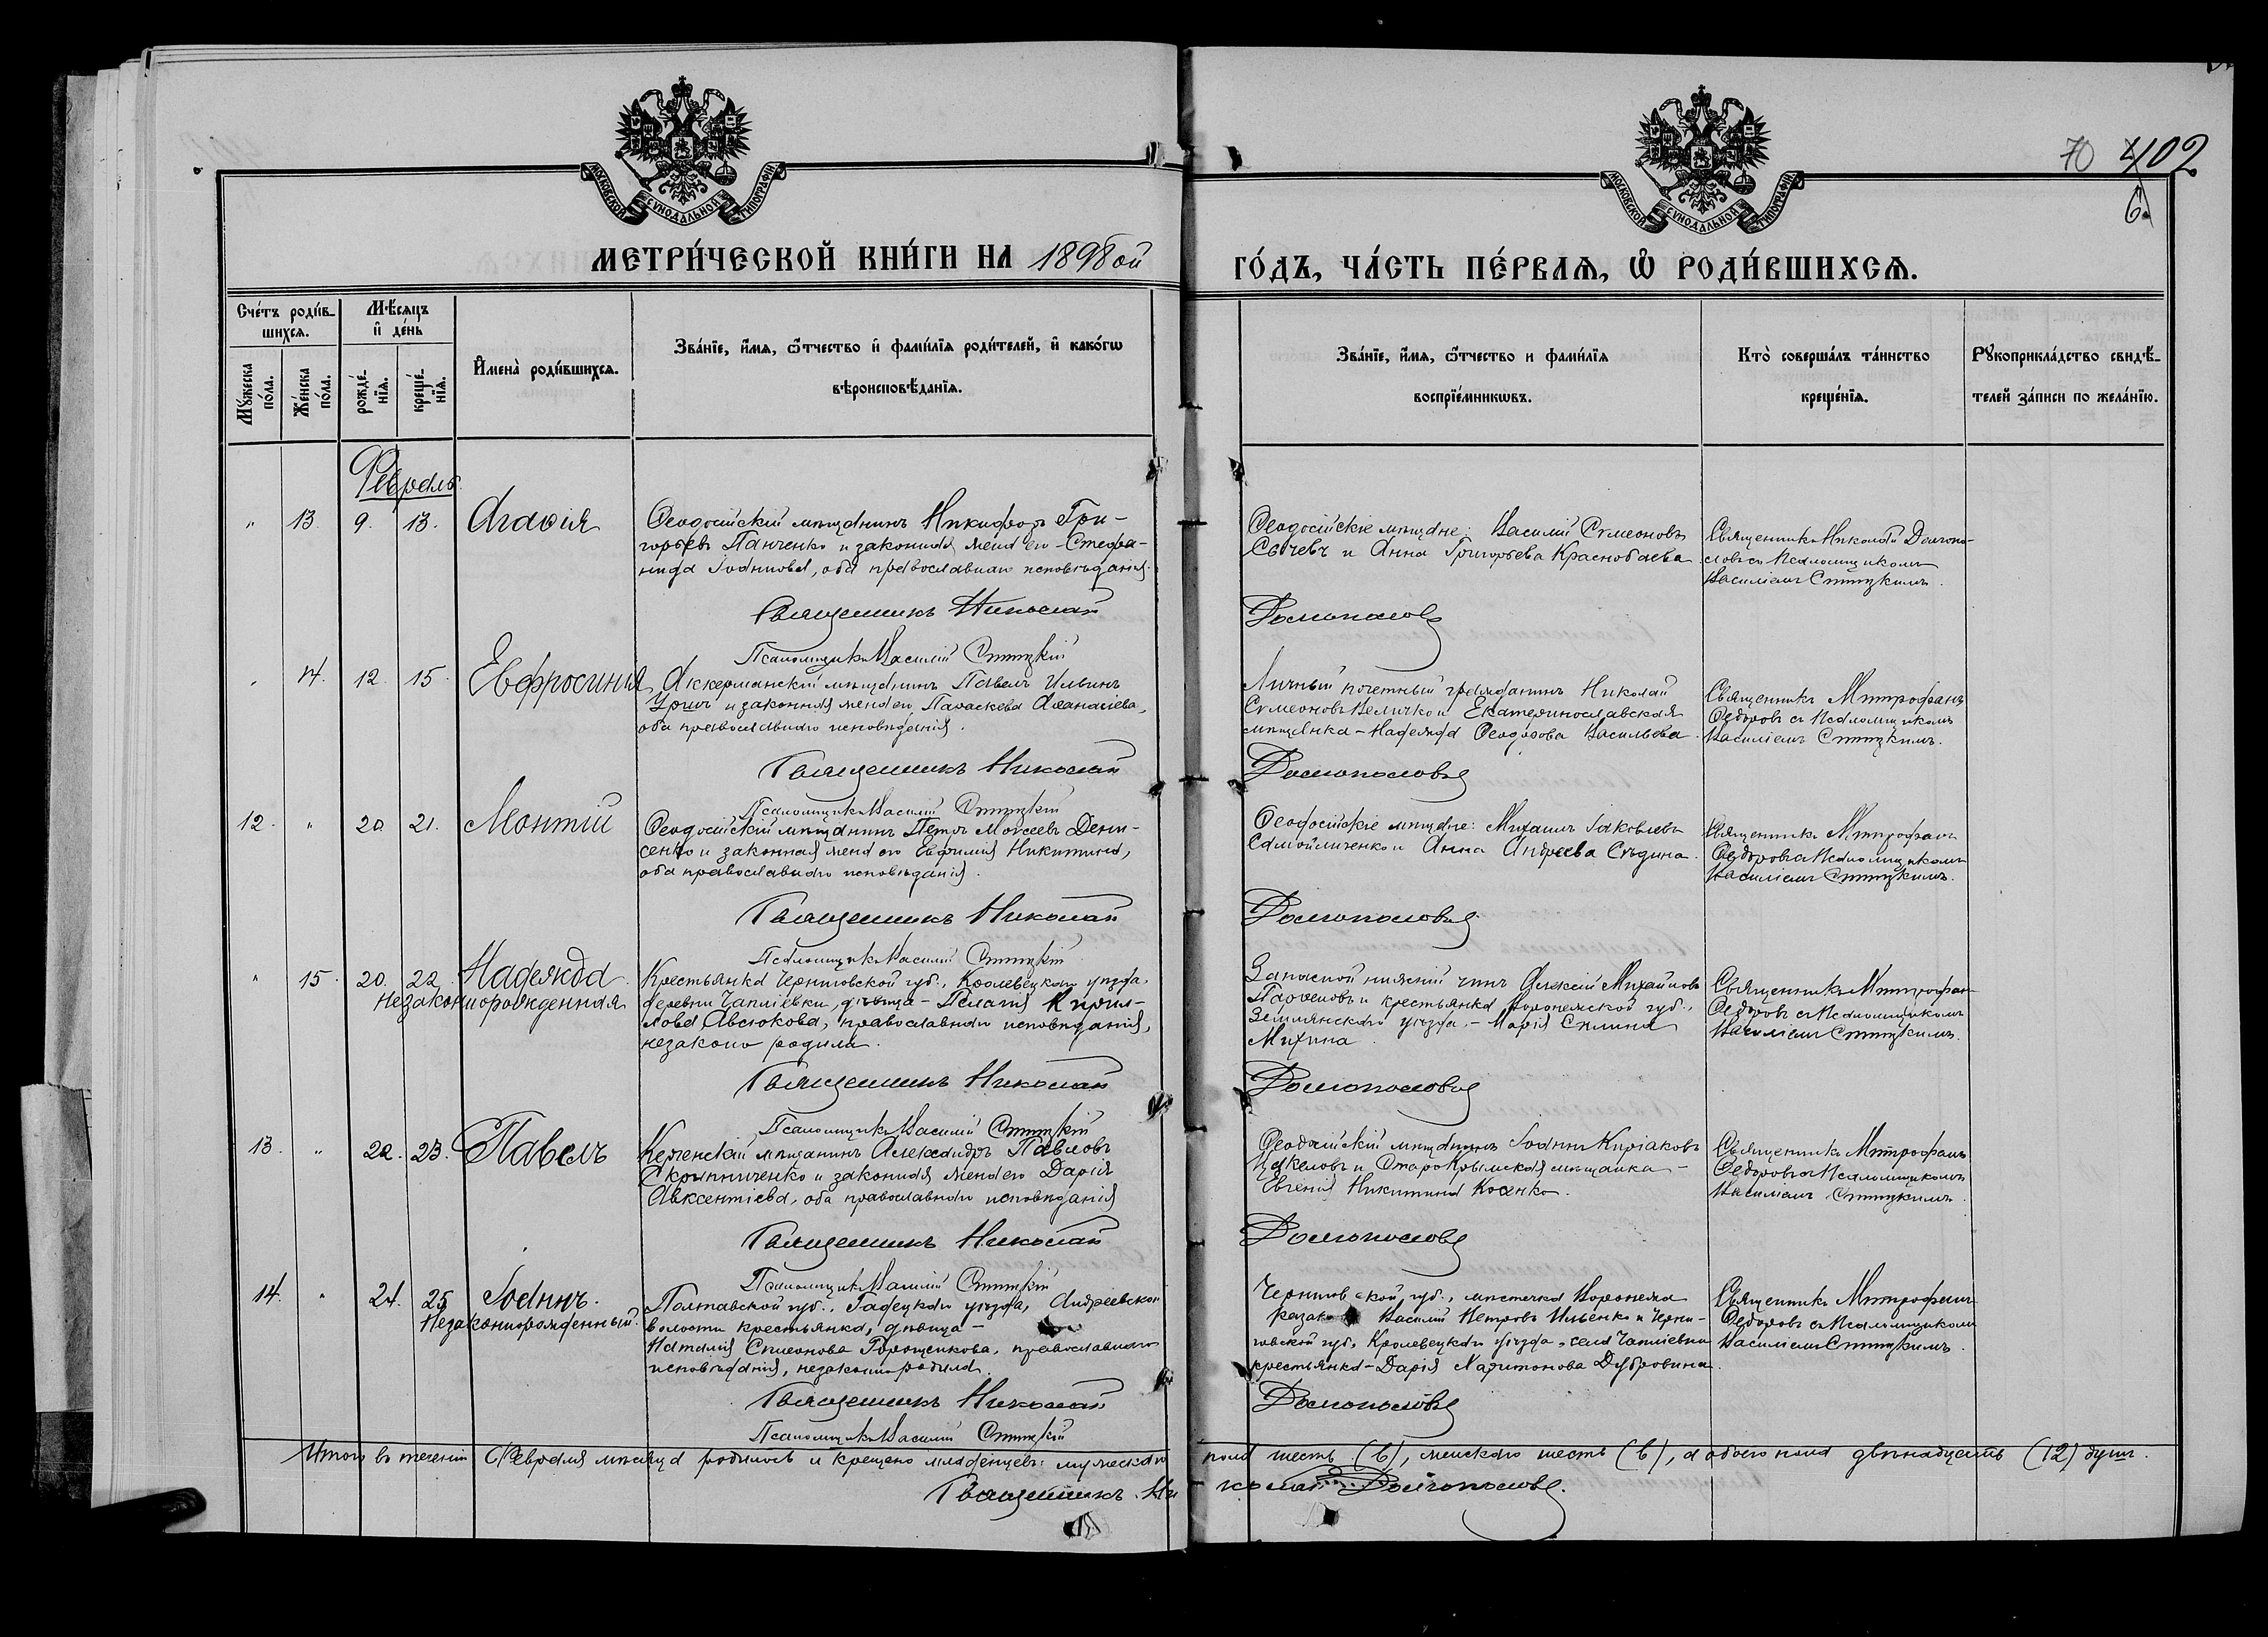 МОСКОВСКОЙ СѴНОДАЛЬНОЙ ТИПОГРАФІИ
МОСКОВСКОЙ СѴНОДАЛЬНОЙ ТИПОГРАФІИ
70 402
6.
МЕТРИ́ЧЕСКОЙ КНИ́ГИ НА 1898ой
ГО́ДЪ, ЧА́СТЬ ПЕ́РВАѦ, Ѽ РОДИ́ВШИХСѦ.
Сче́тъ роди́в-
шихсѧ.
Мꙋ́жеска по́ла.
Же́нска по́ла.
Мѣ́сѧцъ
и҆ де́нь
рожде́-нїѧ.
креще́-нїѧ.
И҆мена̀ роди́вшихсѧ.
Зва́нїе, и҆́мѧ, ѻ҆́тчество и҆ фами́лїѧ роди́телей, и҆ како́гѡ
вѣроисповѣ́данїѧ.
Зва́нїе, и҆́мѧ, ѻ҆́тчество и фами́лїѧ
воспрїе́мникѡвъ.
Кто̀ соверша́лъ та́инство
креще́нїѧ.
Рꙋкоприкла́дство свидѣ́-
телей за́писи по жела́нїю.
Февраль
" 13. 9. 13. Агаѳія
Ѳеодосійскій мѣщанинъ Никифоръ Гри-
горьевъ Панченко и законная жена его - Стефа-
нида Іоаннова, оба православнаго исповѣданія.
Священникъ Николай
Псаломщикъ Василій
Ѳеодосійскіе мѣщане: Василій Симеоновъ
Сычевъ и Анна Григорьева Краснобаева.
Долгополовъ
Священникъ Николай Долгопо-
ловъ съ Псаломщикомъ
Василіемъ
" 14. 12. 15. Евфросинія
Аккерманскій мѣщанинъ Павелъ Ильинъ
и законная жена его Параскева Аѳанасіева,
оба православнаго исповѣданія.
Священникъ Николай
Псаломщикъ Василій
Личный почетный гражданинъ Николай
Симеоновъ Величко и Екатеринославская
мѣщанка - Надежда Ѳеодорова Васильева.
Долгополовъ
Священникъ Митрофанъ
Ѳедоровъ съ Псаломщикомъ
Василіемъ
12. " 20. 21. Леонтій
Ѳеодосійскій мѣщанинъ Петръ Моѵсеевъ Дени-
сенко и законная жена его Евфимія Никитина,
оба православнаго исповѣданія.
Священникъ Николай
Псаломщикъ Василій
Ѳеодосійскіе мѣщане: Михаилъ Іаковлевъ
Самойличенко и Анна Андреева Сѣдина.
Долгополовъ
Священникъ Митрофанъ
Ѳедоровъ съ Псаломщикомъ
Василіемъ
" 15. 20. 22. Надежда
Незаконнорожденная
Крестьянка Черниговской губ., Кролевецкаго уѣзда,
деревни Чапліевки, дѣвица - Пелагія Кирил-
лова Авсюкова, православнаго исповѣданія,
незаконно родила.
Священникъ Николай
Псаломщикъ Василій
Запасной нижній чинъ Алексій Михайловъ
Парѳеновъ и крестьянка Воронежской губ.,
Землянскаго уѣзда, - Марія
Михина.
Долгополовъ
Священникъ Митрофанъ
Ѳедоровъ съ Псаломщикомъ
Василіемъ
13. " 22. 23. Павелъ
Керченскій мѣщанинъ Александръ Павловъ
Скрыпниченко и законная жена его Дарія
Авксентіева, оба православнаго исповѣданія
Священникъ Николай
Псаломщикъ Василій
Ѳеодосійскій мѣщанинъ Іоаннъ Киріаковъ
и СтароКрымская мѣщанка -
Евгенія Никитина Косенко.
Долгополовъ
Священникъ Митрофанъ
Ѳедоровъ съ Псаломщикомъ
Василіемъ
14. " 24. 25 Іоаннъ.
Незаконнорожденный.
Полтавской губ., Гадецкаго уѣзда, Андреевской
волости крестьянка, дѣвица -
Наталія Симеонова Горощенкова, православнаго
исповѣданія, незаконно родила.
Священникъ Николай
Псаломщикъ Василій
Черниговской губ., мѣстечка Воронежа
казакъ Василій Петровъ Ильенко и Черни-
говской губ. Кролевецкаго уѣзда, села Чапліевки
крестьянка - Дарія Харитонова Дубровина.
Долгополовъ
Священникъ Митрофанъ
Ѳедоровъ съ Псаломщикомъ
Василіемъ
Итого въ теченіи Февраля мѣсяца родилось и крещено младенцевъ: мужескаго пола шесть (6), женскаго шесть (6), а обоего пола двѣнадцать (12) душъ.
Священникъ Николай Долгополовъ.